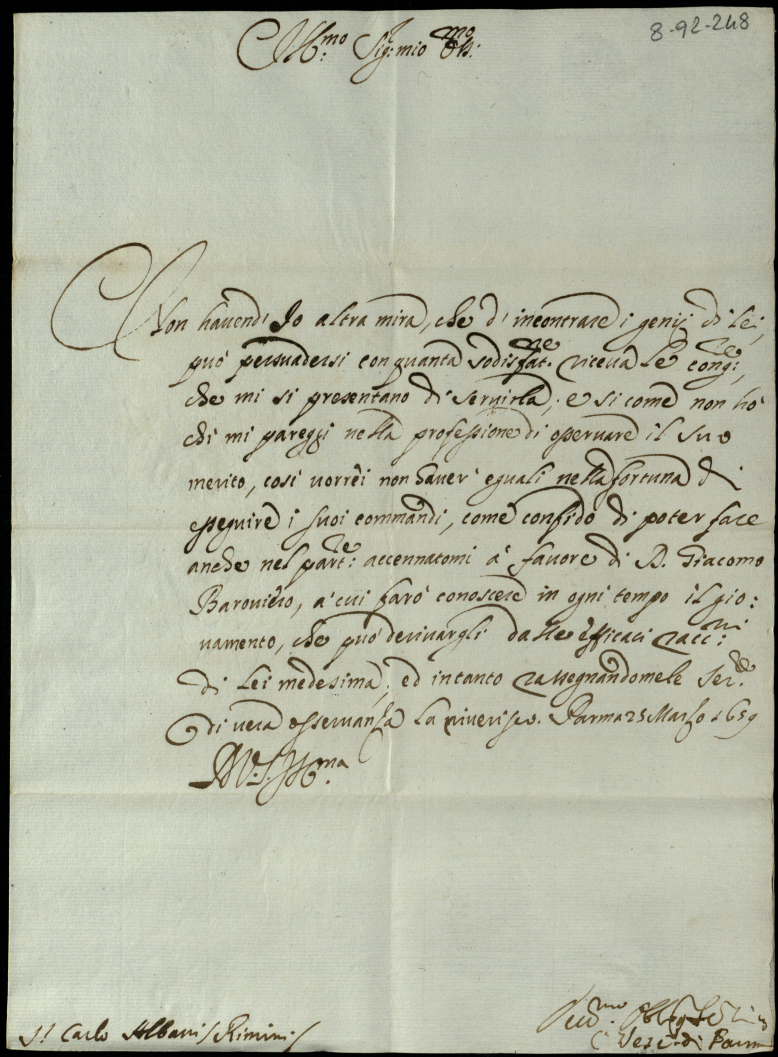 8-92-248
Ill.mo Sig.r mio Oss.mo
Non havend' Io altra mira, che d' incontrare i genij di lei,
può persuadersi con quanta sodisfat.ne riceva le cong.re,
che mi si presentano di servirla; e si come non hò
chi mi pareggi nella professione di osservare il suo
merito, così vorrei non haver' eguali nella fortuna di
esseguire i suoi commandi, come confido di poter fare
anche nel part.re accennatomi à favore di D. Giacomo
Baroviero, à cui farò conoscere in ogni tempo il gio:
vamento, che può derivargli dalle efficaci racc.ni
di lei medesima; ed intanto rassegnandomele Ser.re
di vera osservanza la riverisco. Parma 25 Marzo 1659
Di V.S. Ill.ma
S.r Carlo Albani / Rimini /
Dev.mo Obblig. Ser.
Il Vesc. di Parma